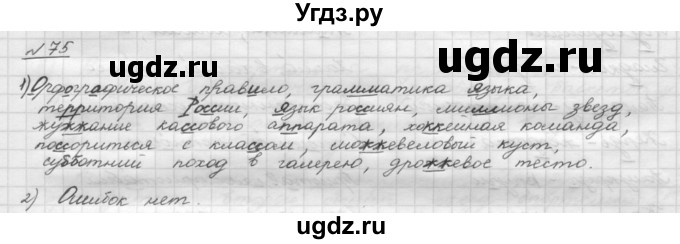 Угдз.ру
№75
ugdz.ru ugdz.ru
1) Орфографическое правило, грамматика языка,
территория России, язык россиян, миллионы звезд,
жужжание кассового аппарата, хоккейная команда,
поссориться с классом, можжевеловый куст,
субботний поход в галерею, дрожжевое тесто.
ugdz.ru ugdz.ru
2) Ошибок нет.
ugdz.ru ugdz.ru